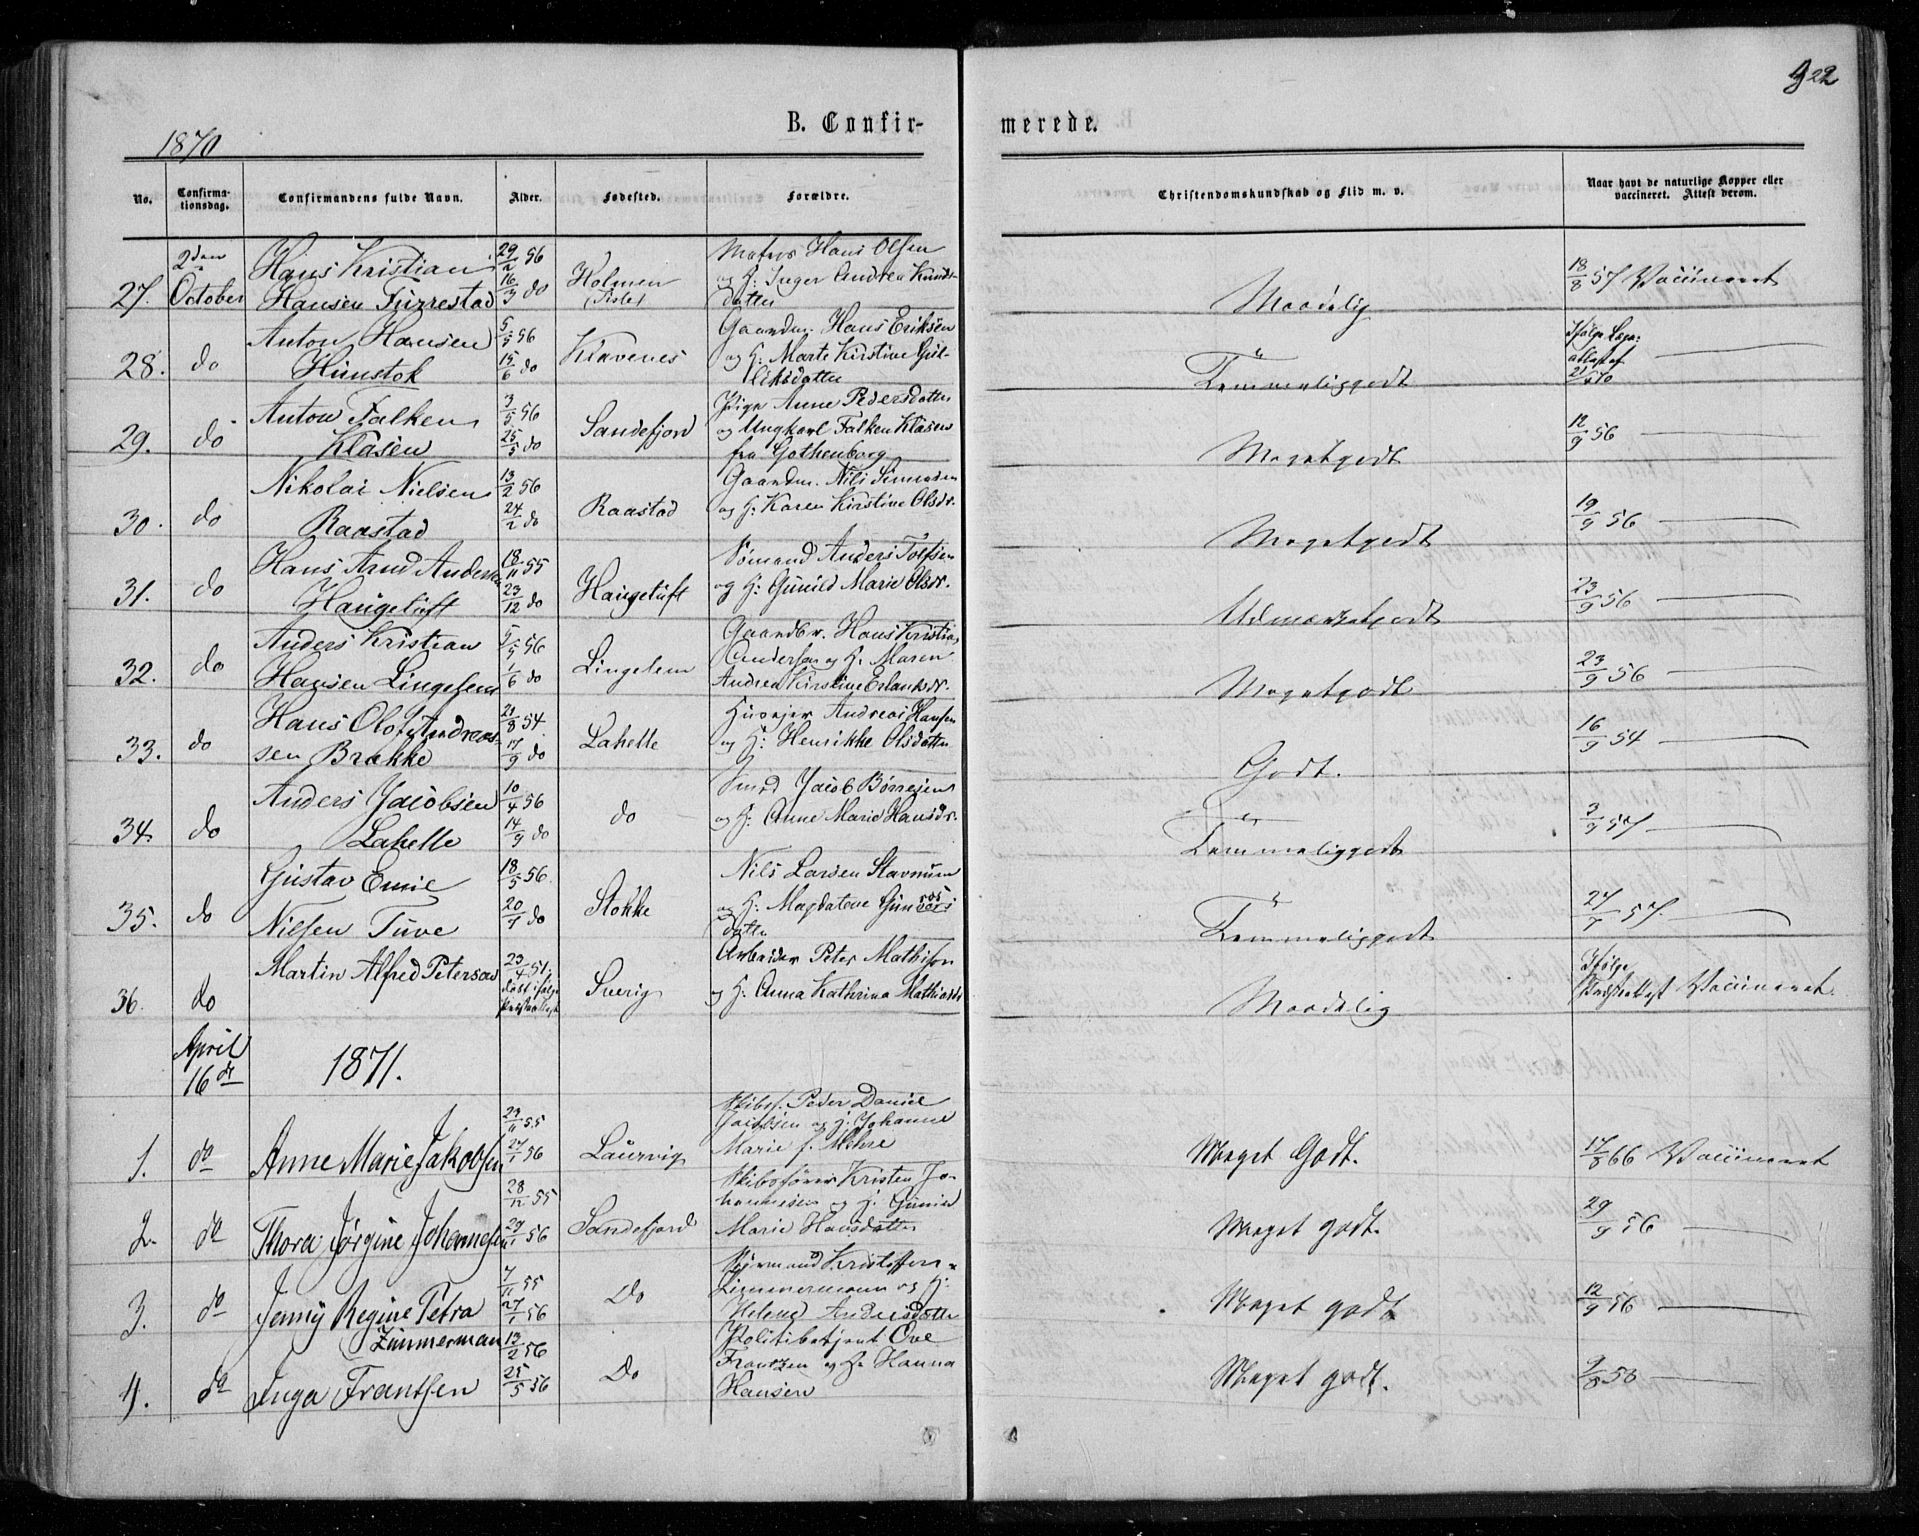 922
1870
B. Confir-
merede.
No.
Confirma-
tionsdag.
Confirmandens fulde Navn.
Alder.
Fødested.
Forældre.
Christendomskundskab og Flid m. v.
Naar havt de naturlige Kopper eller
vaccineret. Attest derom.
27. 2den October Hans Kristian Hansen Furrestad 29/2 56 16/3 do Holmen Hans Olsen og H: Inger Andrea Knuds-datter Maadelig 18/8 57 Vaccineret
28. do Anton Hansen Himstok 5/5 56 15/6 do Klavenes Gaardm. Hans Eriksen og H: Marte Kirstine Gul-liksdatter Temmeliggodt Ifølge attest af
29. do Anton Falken Klasen 3/5 56 25/5 do Sandefjord Pige Anne Pedersdatter og Ungkarl Falken Klasen fra Gothenborg Megetgodt 12/9 56
30. do Nikolai Nielsen Raastad 13/2 56 24/2 do Raastad Gaardm. Nils Simensen og H: Karen Kirstine Olsdr. Megetgodt 19/9 56
31. do Hans Arnd Andersen Haugetuft 18/11 55 23/12 do Haugetuft Sømand Anders Tolfsen og H: Gunild Marie Olsdr. Udmærketgodt 23/9 56
32. do Anders Kristian Hansen Lingelem 5/5 56 1/6 do Lingelem Gaardbr. Hans Kristian Andersen og H. Maren Andrea Kirstine Erlandsdr. Megetgodt 23/9 56
33. do Hans Olof Andreas-sen Brække 21/8 54. 17/9 do Lahelle Huseier Andreas Hansen og H: Henrikke Olsdatter Godt. 16/9 54
34. do Anders Jacobsen Lahelle 10/4 56 14/9 do do Smed Jacob Børresen og H: Anne Marie Hansdr. Temmeliggodt 3/9 57
35. do Gustav Emil Nielsen Tuve 18/5 56. 20/7 do Stokke Nils Larsen Stavnum og H: Magdalene datter Temmeliggodt 27/7 57.
36. do Martin Alfred Peterson 23/4 51. døbt ifølge Præsteattest Sverig Arbeider Peter Mathison og H: Anna Kathrina Mathiasdr Maadelig Ifølge Præsteattest Vaccineret
April
16de
1871.
1. do Anne Marie Jakobsen 27/1 56 Laurvig Skibsf. Peder Daniel Jacobsen og H. Johanne Marie f. Meget Godt. 17/8 66 Vaccineret
2. do Thora Jørgine Johannesen 28/12 55 Sandefjord Skibsfører Kristen Jo-hannesen og H. Gunild Marie Hansdatter Meget godt. 29/9 56
3. do Jenny Regine Petra Zimmerman 7/11 55 27/1 56 Do Kristoffer Zimmermann og H. Helene Andersdatter Meget godt 12/9 56
4. do Inga Frantsen 13/2 56 25/5 56 Do Politibetjent Ove Frantzen og H. Hanna Hansen Meget godt. 9/8 58